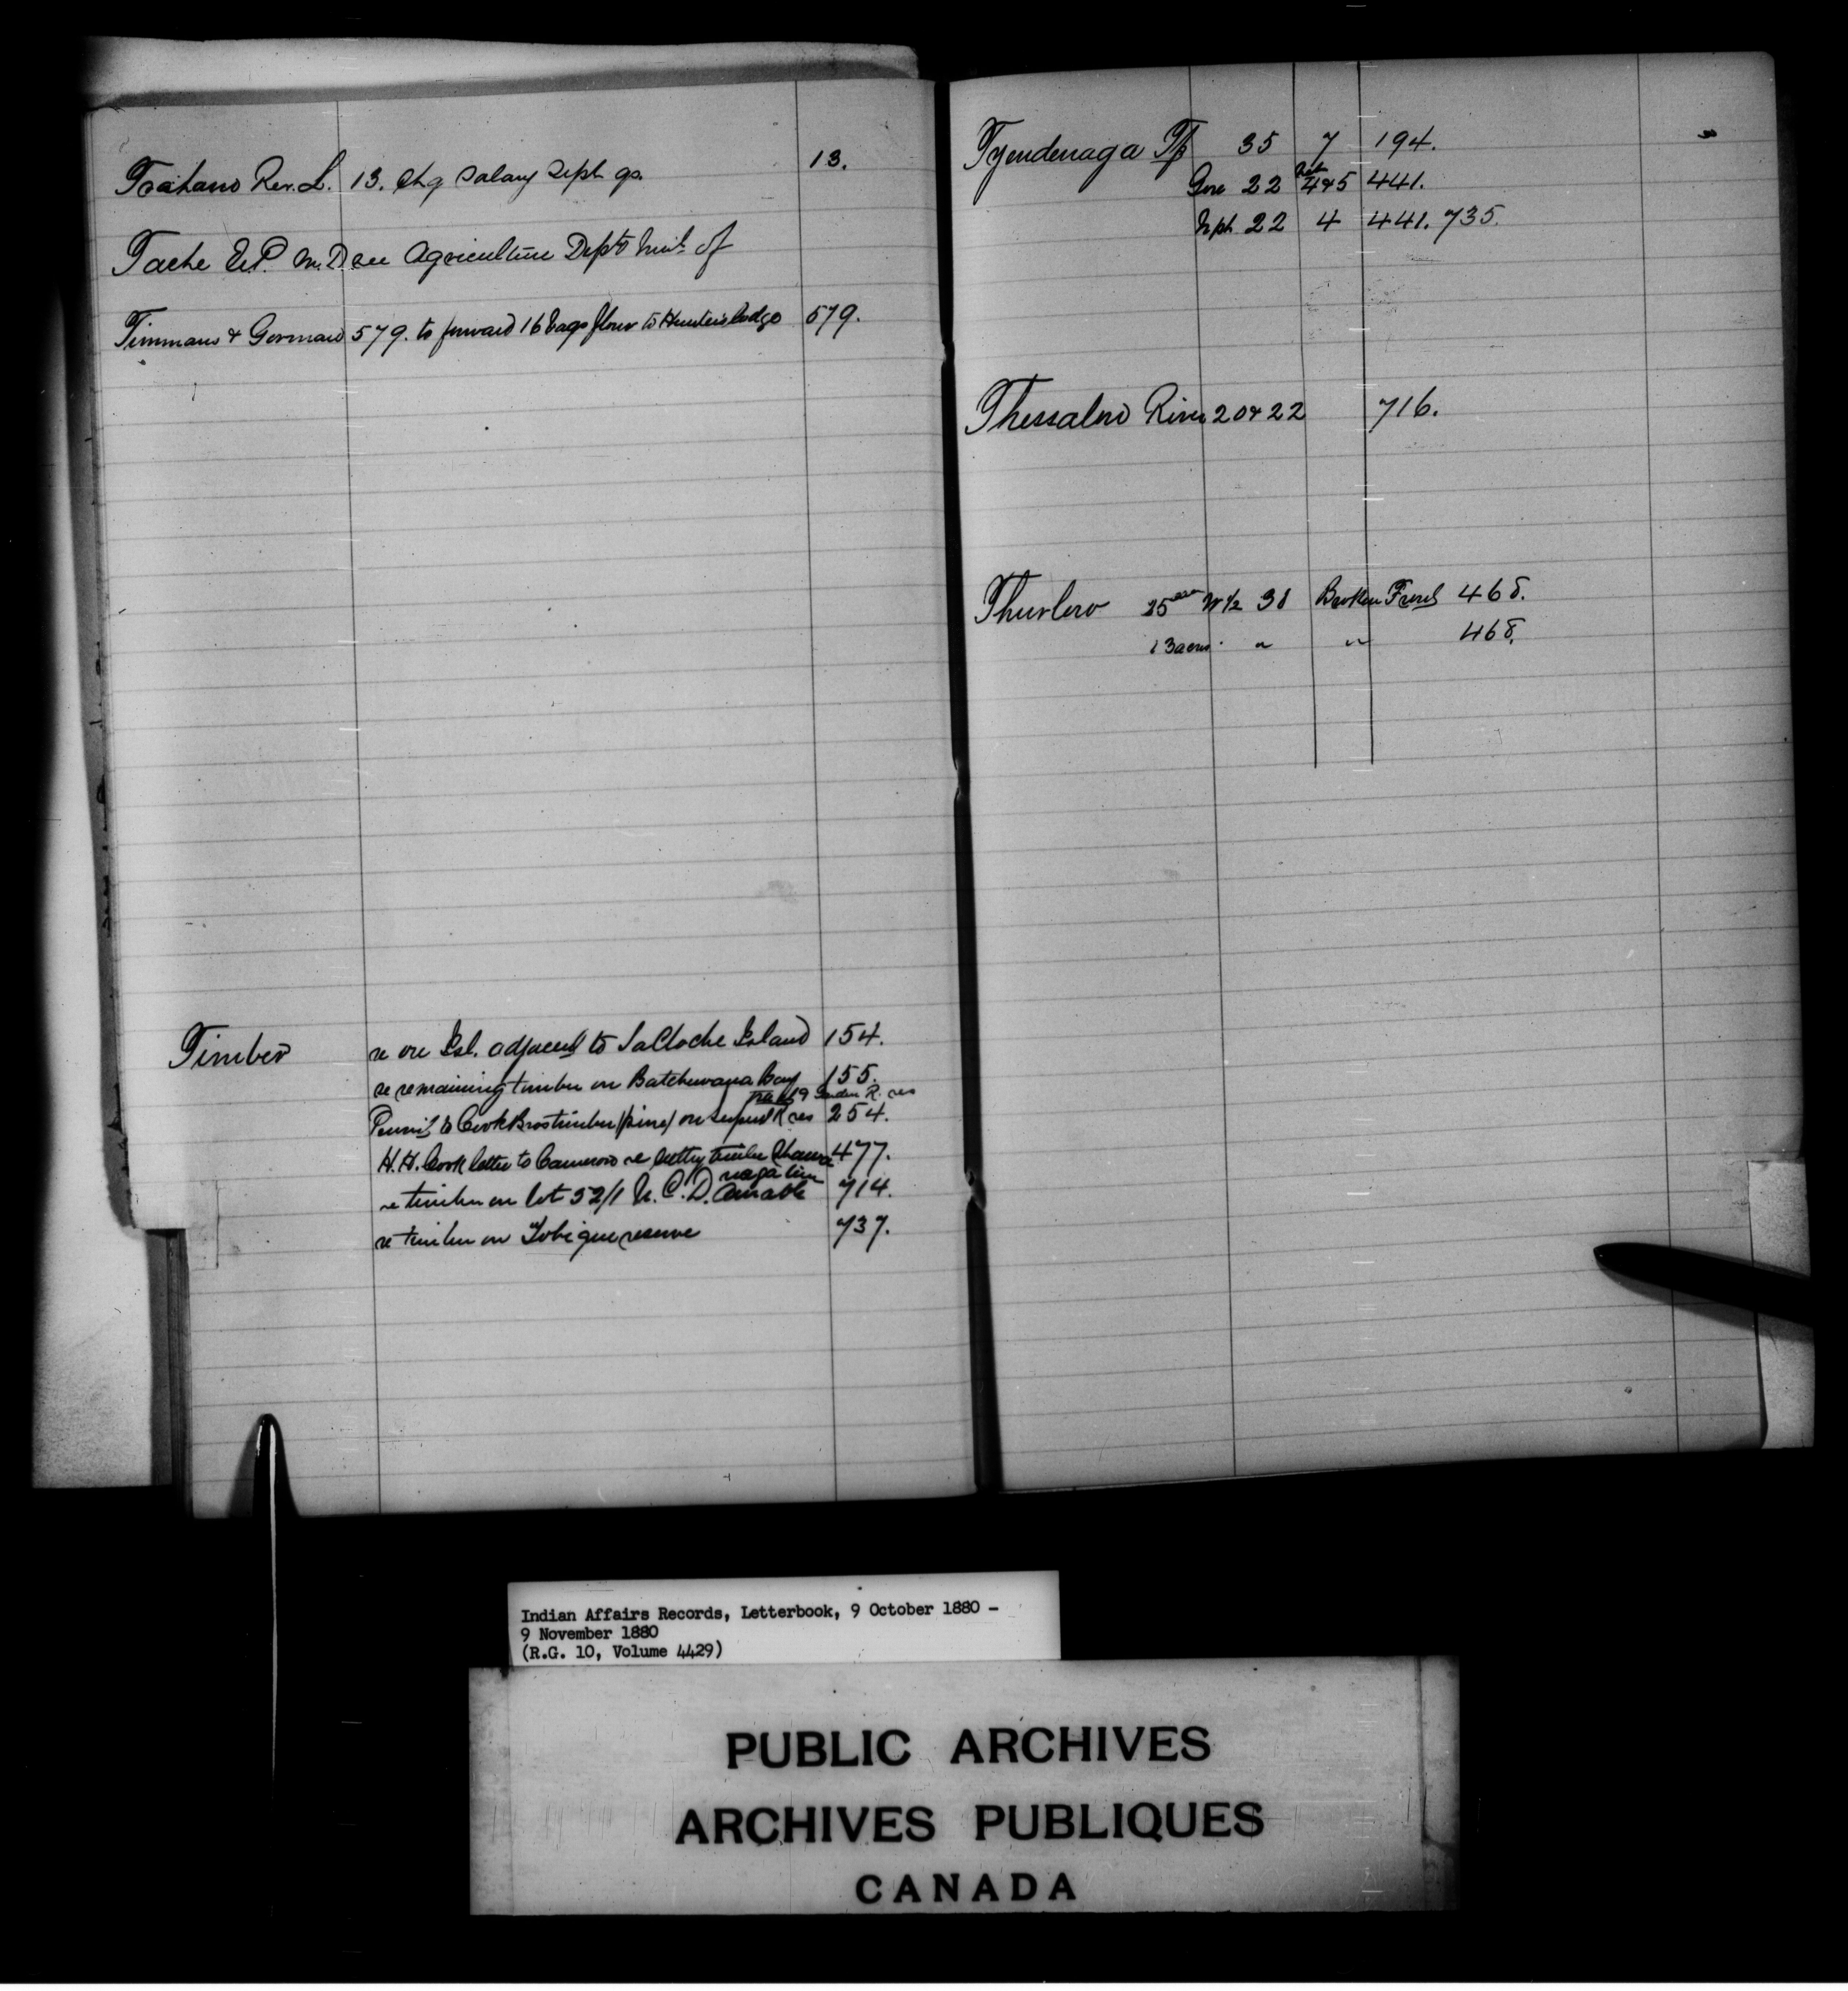 Trahand Rev. L. 13. Chq Salary Sept. qr. 13.
Tache E.P. M.D. see Agriculture Dept. Minr. of
Timmans & Gorman 579. to forward 16 bags flour to Hunters lodge 579.
Timber re on Isl. adjacent to LaCloche Island 154.
re remaining timber on Batchewana Bay 155.
9 Garden R. res
Permit to Cook Bros timber (pine) on Serpent R res 254.
H.H. Cook letter to Cameron re cutting timber 477.
re timber on lot 32/1 N. C. D. Amable 714.
re timber on Tobique reserve 737.
Tyendenaga Tp 35 7 194.
Gore 22 4&5 441.
22 4 441. 735.
Thessalon River 20 & 22 716.
Thurlow 25 W½ 38 Broken Front 468.
13 acres " " 468.
Indian Affairs Records, Letterbook, 9 October 1880 –
9 November 1880
(R.G. 10, Volume 4429)
PUBLIC ARCHIVES
ARCHIVES PUBLIQUES
CANADA